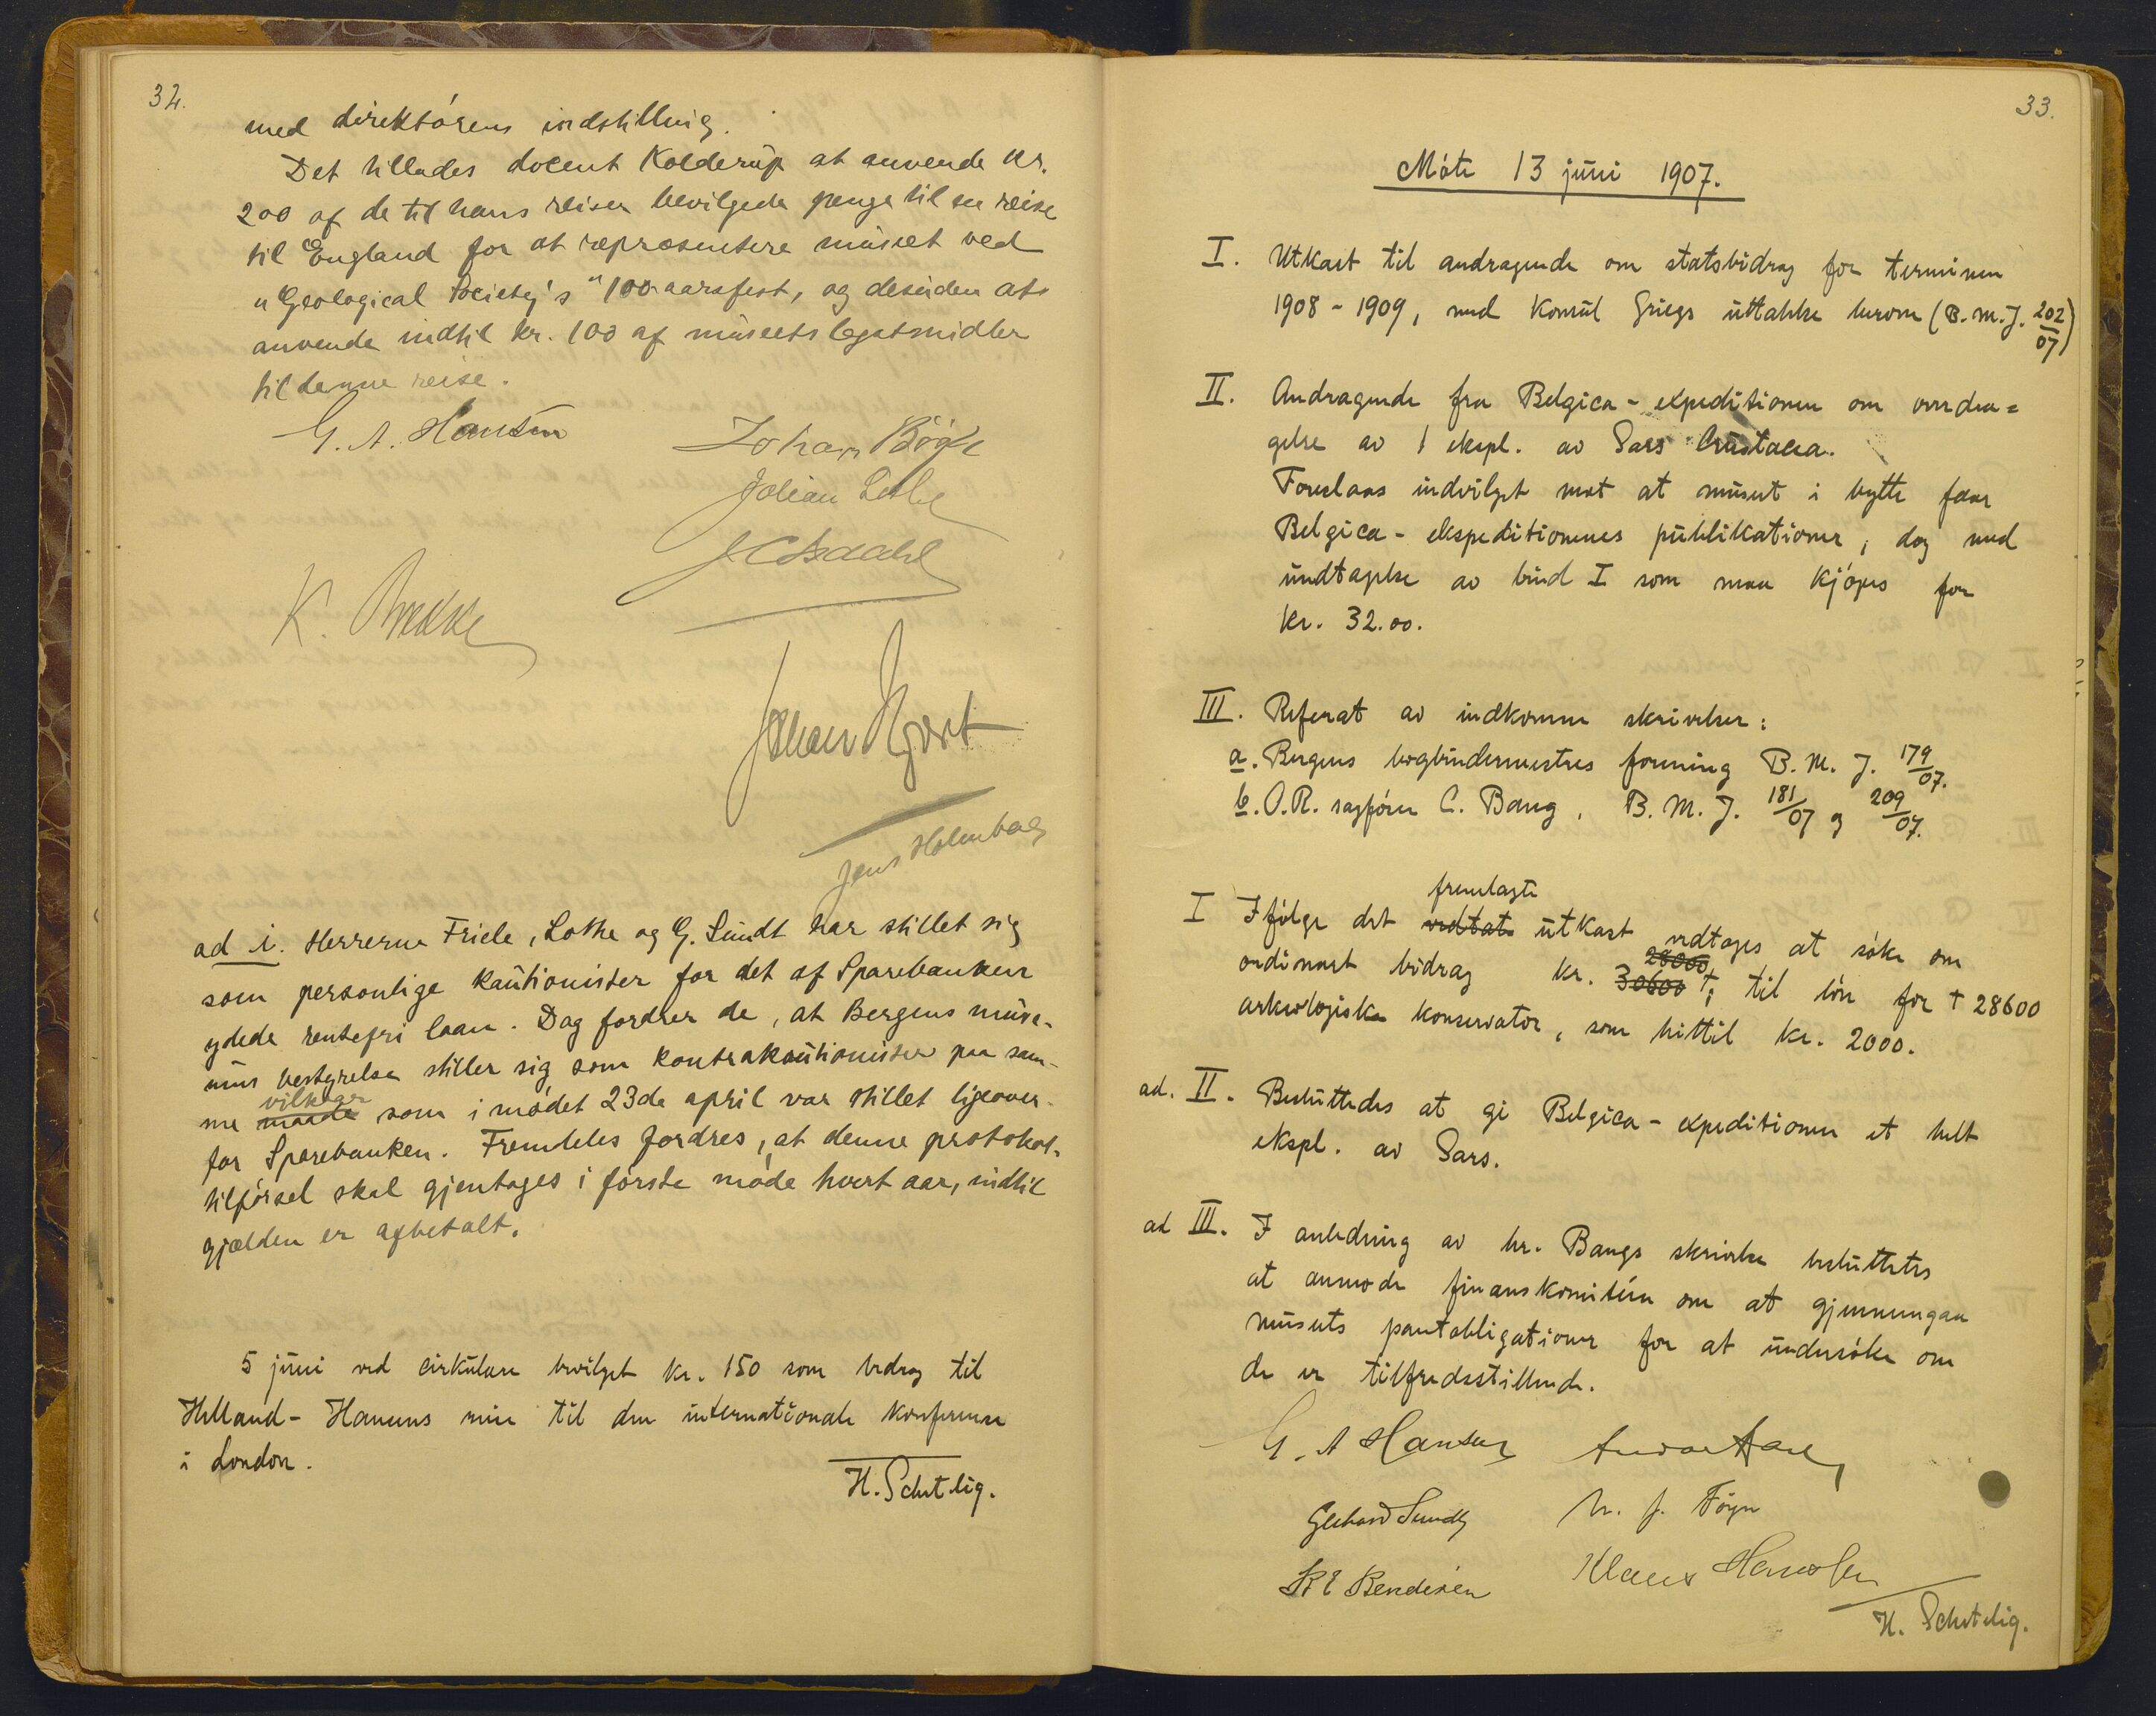 32.
med direktörens indstilling.
Det tillades docent Kolderup at anvende kr.
200 af de til hans reiser bevilgede penge til en reise
til England for at repræsentere museet ved
"Geological Society's" 100-aarsfest, og desuden at
anvende indtil kr. 100 af museets legatmidler
til denne reise.
G. A. Hansen
Johan Bøgh
J C Isdahl
K. Brekke
Johan Hjort
Jens Holmboe
ad i. Herrerne Friele, Lothe og G. Sundt har stillet sig
som personlige kautionister for det af Sparebanken
ydede rentefri laan. Dog fordrer de, at Bergens muse-
ums bestyrelse stiller sig som kontrakautionister paa sam-
vilkaar
me maade som i mödet 23de april var stillet ligeover-
for Sparebanken. Fremdeles fordres, at denne protokol-
tilförsel skal gjentages i förste möde hvert aar, indtil
gjælden er afbetalt.
5 juni ved cirkulære bevilget kr. 150 som bidrag til
Helland-Hansens reise til den internationale konferense
i London.
H. Schetelig.
33.
Möte 13 juni 1907.
I. Utkast til andragende om statsbidrag for terminen
1908-1909, med konsul Griegs uttalelse herom (B.M.J. 202/07)
II. Andragende fra Belgica-expeditionen om overdra=
gelse av 1 ekspl. av Sars Crustacea.
Foreslaas indvilget mot at museet i bytte faar
Belgica-ekspeditionens publikationer, dog med
undtagelse av bind I som maa kjöpes for
kr. 32.00.
III. Referat av indkomne skrivelser:
a. Bergens bogbindermestres forening B. M. J. 179/07.
b. O.R. sagförer C. Bang, B. M. J. 181/07 og 209/07.
fremlagte
I Ifölge det vedtat utkast vedtages at söke om
28000
ordinært bidrag kr. 30600 †; til lön for † 28600
arkeologiske konservator, som hittil kr. 2000.
ad. II. Besluttedes at gi Belgica-expeditionen et helt
ekspl. av Sars.
ad III. I anledning av hr. Bangs skrivelse besluttetes
at anmode finanskomitéen om at gjennemgaa
museets pantobligationer for at undersöke om
de er tilfredsstillende.
G. A Hansen
Gerhard Sundt
N. J. Föyn
B E Bendixen
Klaus Hanssen
H. Schetelig.